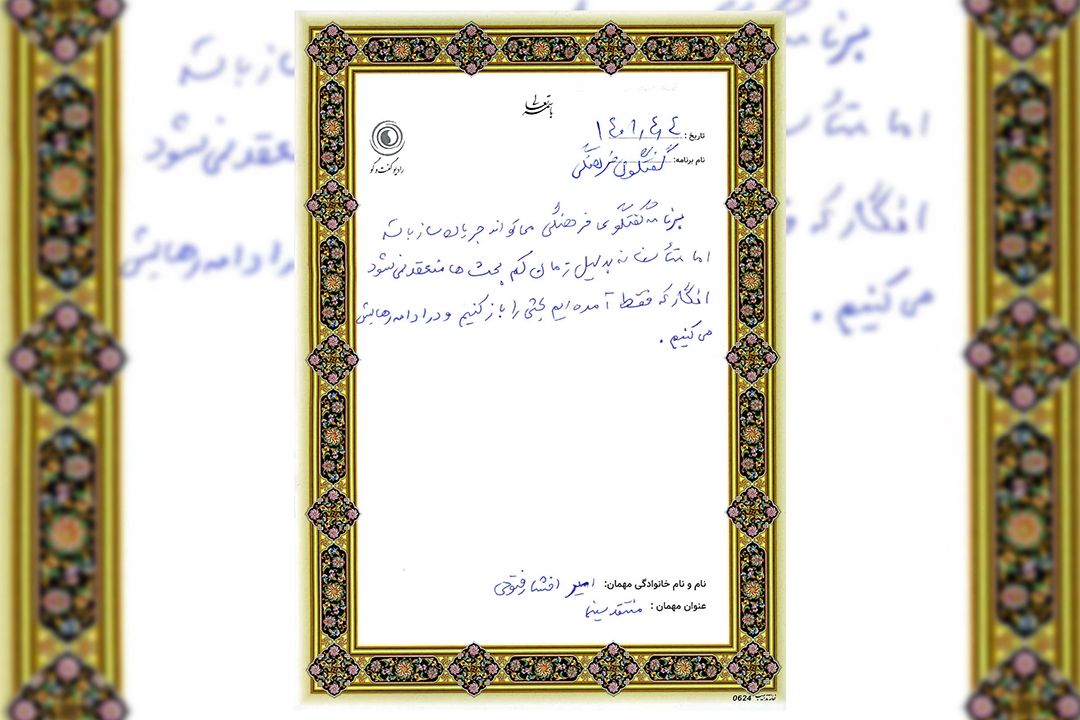 باسمه تعالی
رادیو گفت و گو
تاریخ: ۱۴۰۱/۴/۴
نام برنامه: گفتگوی فرهنگی
برنامه گفتگوی فرهنگی می تواند جریان ساز باشد
اما متأسفانه بدلیل زمان کم بحث ها منعقد نمی شود
انگار که فقط آمده ایم بحثی را باز کنیم و در ادامه رهایش
می کنیم.
نام و نام خانوادگی مهمان: امیر افشار فتوحی
عنوان مهمان: منتقد سینما
0624